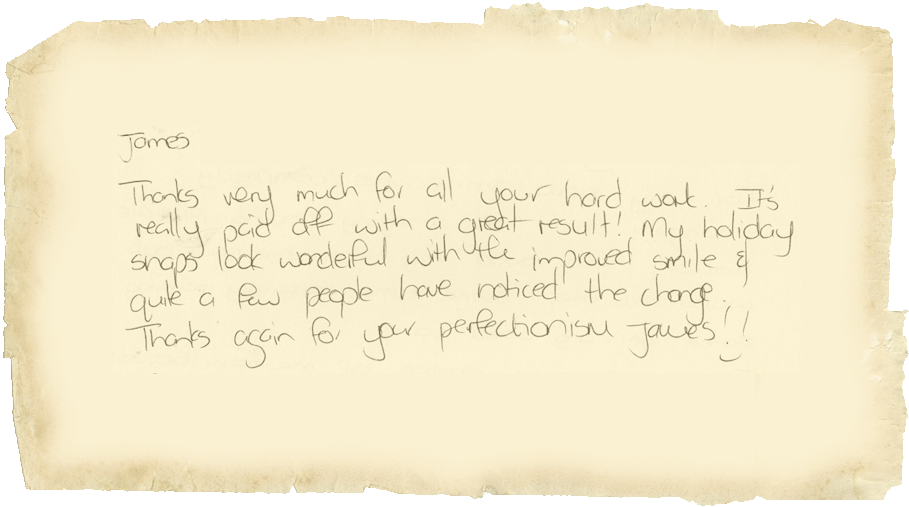 James
Thanks very much for all your hard work. It's
really paid off with a great result! My holiday
snaps look wonderful with the improved smile &
quite a few people have noticed the change.
Thanks again for your perfectionism James!!